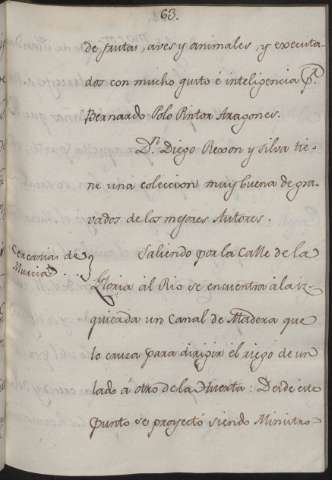 63.
de frutas, aves y animales, y executa-
dos con mucho gusto é inteligencia P.r
Bernardo Polo Pintor Aragones.
D.n Diego Rexon y Silva tie-
ne una coleccion muy buena de gra-
vados de los mejores Autores.
Cercanias de
Murcia.
Saliendo por la Calle de la
Gloria al Rio se encuentra á la iz-
quierda un Canal de Madera que
lo causa para dirigir el riego de un
lado á otro de la Huerta: Desde este
punto se proyectó siendo Ministro